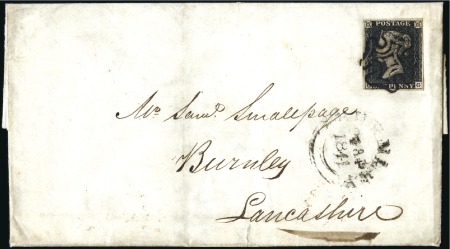 POSTAGE
PENNY
Mr. Saml. Smallpage
Burnley
Lancashire
1841